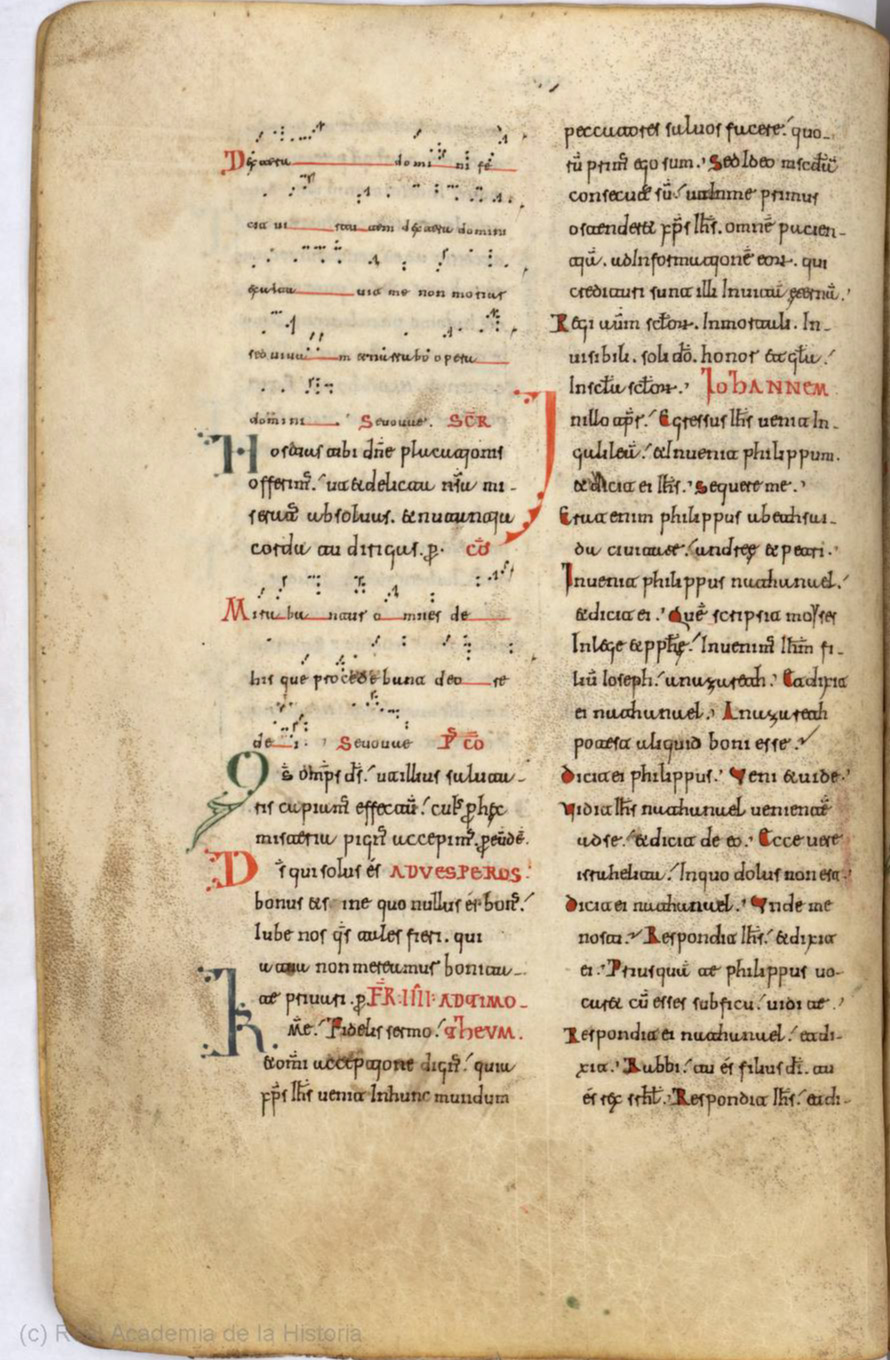 Dextera domini fe
cit vir tutem dextera domini
exalta vit me non moriar
sed viva m et narrabo opera
domini. Seuouae. SCR̄
Hostias tibi dn̄e placationis
offerim'. ut et delicta nr̄a mi-
seratꝰ absoluas. et nutantia
corda tu dirigas. ꝑ. CŌ
Mira ba ntur o mnes de
his que procedebant de o re
dei. Seuouae P̄ CŌ
Qs̄ omp̄s ds̄. ut illius saluta-
ris capiam' effectū. cuiꝰ ꝑ hęc
misteria pign' accepim'. ꝑ eūdē.
Ds̄ qui solus es AD VESPEROS.
bonus et sine quo nullus es bon'.
Iube nos qs̄ tales fieri. qui
a tua non mereamur bonita-
te privari. ꝑ. FR̄ IIII. AD TIMO-
K m̄e. Fidelis sermo. THEVM.
et omi accepatione dign'. quia
xp̄s ihs̄ venit In hunc mundum
peccatores saluos facere. quo-
rū prim' ego sum. Sed Ideo misc̄dīā
consecutꝰ sū. ut In me primus
ostenderet xp̄s ihs̄. omnē pacien-
tiā. ad Informationē eoꝝ. qui
credituri sunt illi In uitā ęternā.
Regi aūm sc̄loꝝ. Inmortali. In-
uisibili. soli dō. honor et gl̄a.
In sc̄la sc̄loꝝ. IOHANNEM
In illo tp̄r. Egressus ihs̄ uenit In
galileā. et Inuenit philippum.
et dicit ei ihs̄. Sequere me.
Erat enim philippus a bethsai-
da ciuitate. andreę et petri.
Inuenit philippus nathanael.
et dicit ei. Quē scripsit moyses
In lege et pp̄hę. Inuenim' ihm̄ fi-
liū Ioseph. a nazareth. Et dixit
ei nathanael. A nazareth
potest aliquid boni esse.
Dicit ei philippus. Veni et uide.
Vidit ihs̄ nathanael uenientē
ad se. et dicit de eo. Ecce uere
israhelita. In quo dolus non est.
Dicit ei nathanael. Vnde me
nosti. Respondit ihs̄. et dixit
ei. Priusquā te philippus uo-
caret cū esses sub ficu. uidi te.
Respondit ei nathanael. et di-
xit. Rabbi. tu es filius dī. tu
es rex isrl̄. Respondit ihs̄. et di-
(c) Real Academia de la Historia